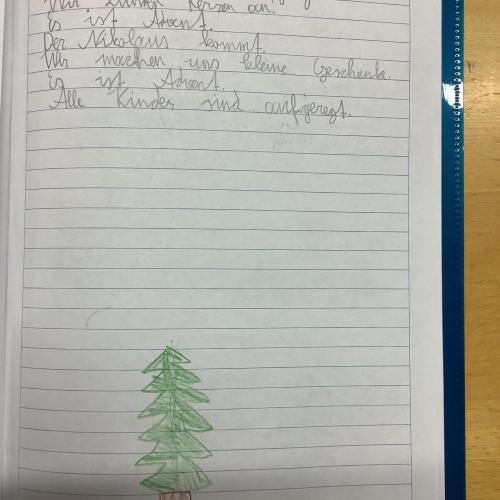 Wir zünden Kerzen an.
Es ist Advent.
Der Nikolaus kommt.
Wir machen uns kleine Geschenke.
Es ist Advent.
Alle Kinder sind aufgeregt.